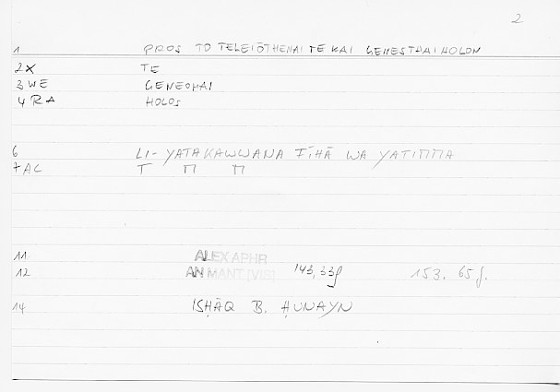 2
1 PROS TO TELEIŌTHENAI TE KAI GENESTHAI HOLON
2X TE
3 WE GENESTHAI
4 RA HOLOS
6 LI- YATAKAWWANA FĪHĀ WA YATIMMA
7 AC T M M
11 ALEX APHR
12 AN MANT [VIS] 143,33f 153. 65 f.
14 ISḤĀQ B. ḤUNAYN